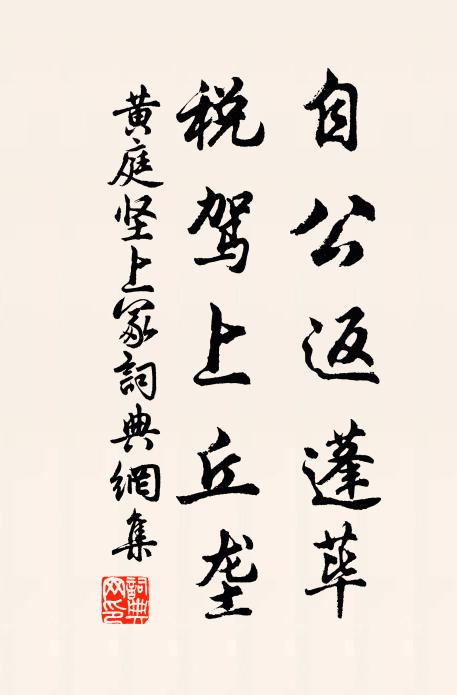 自公返蓬荜
税驾上丘垄
黄庭坚上冢詞典網集
詞典网印